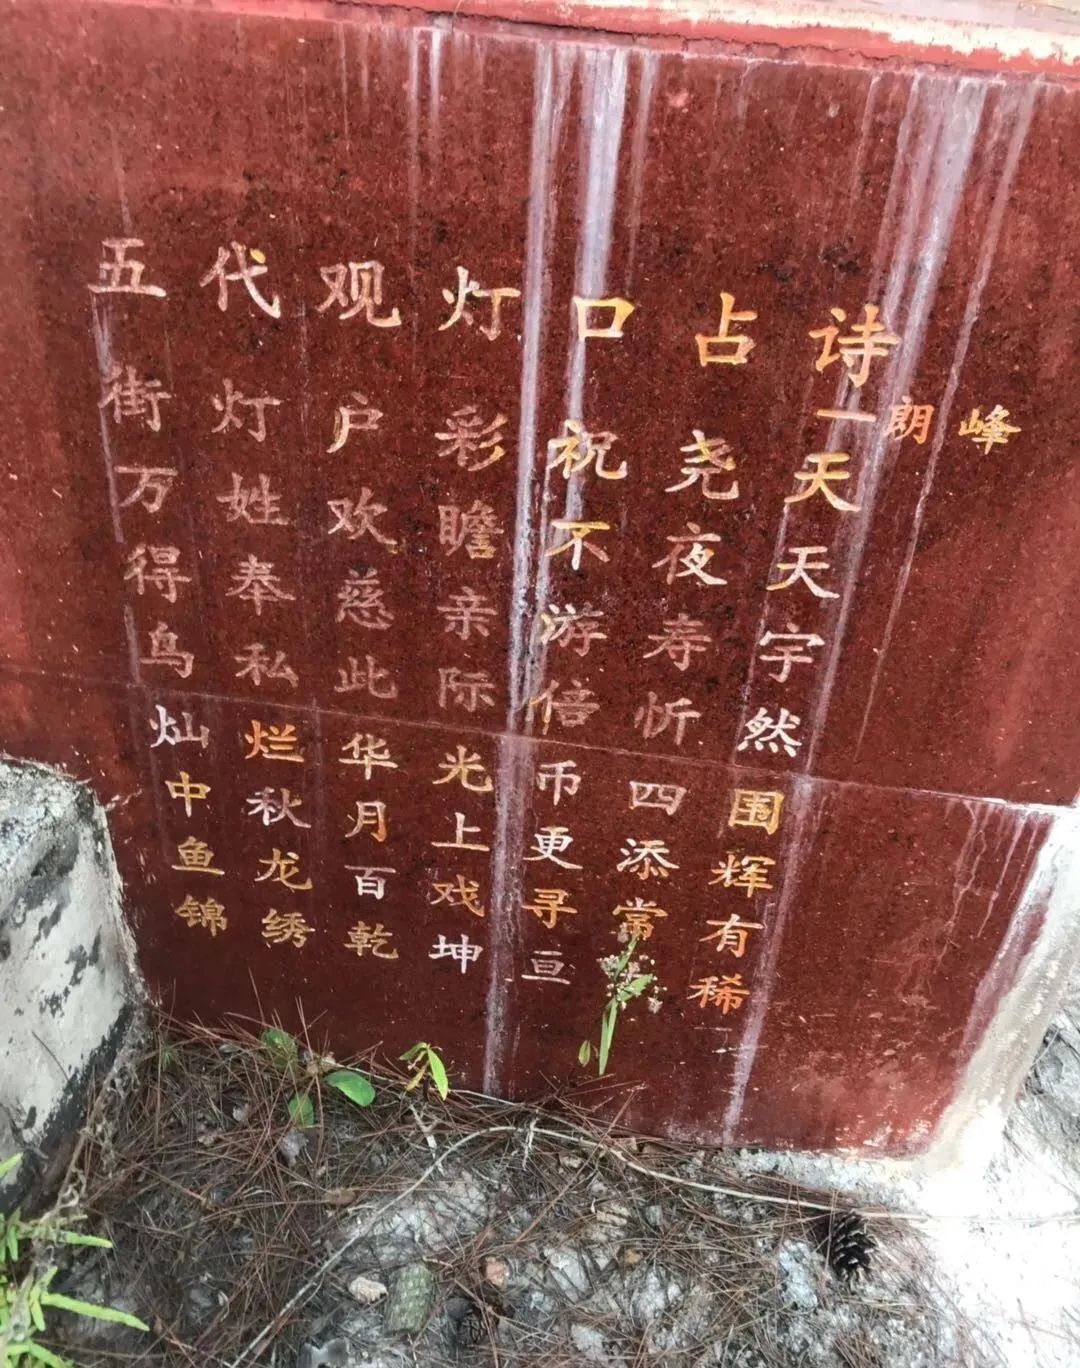 五代观灯口占诗
一朗峰
街灯户彩祝尧天
万姓欢瞻不夜天
得奉慈亲游寿宇
鸟私此际倍忻然
灿烂华光币四围
中秋月上更添辉
鱼龙百戏寻常有
锦绣乾坤亘稀